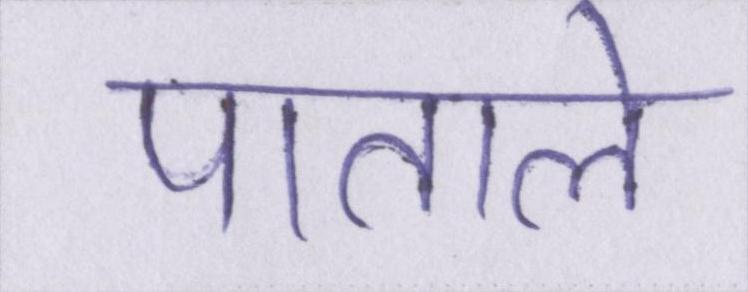 पाताले